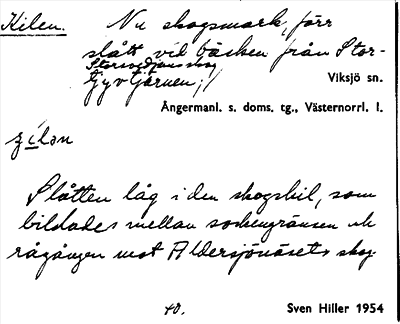 Kilen. Nu skogsmark, förr
slått vid bäcken från Stor-
Gyvtjärnen,
Viksjö sn.
Ångermanl. s. doms. tg., Västernorrl. l.
Slåtten låg i den skogskil, som
bildades mellan sockengränsen och
rågången mot Aldersjönäsets skog.
40.
Sven Hiller 1954